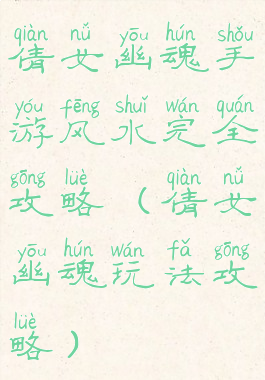 qiàn nǚ yōu hún shǒu
倩女幽魂手
yóu fēng shuǐ wán quán
游风水完全
gōng lüè qiàn nǚ
攻略（倩女
yōu hún wán fǎ gōng
幽魂玩法攻
lüè
略）